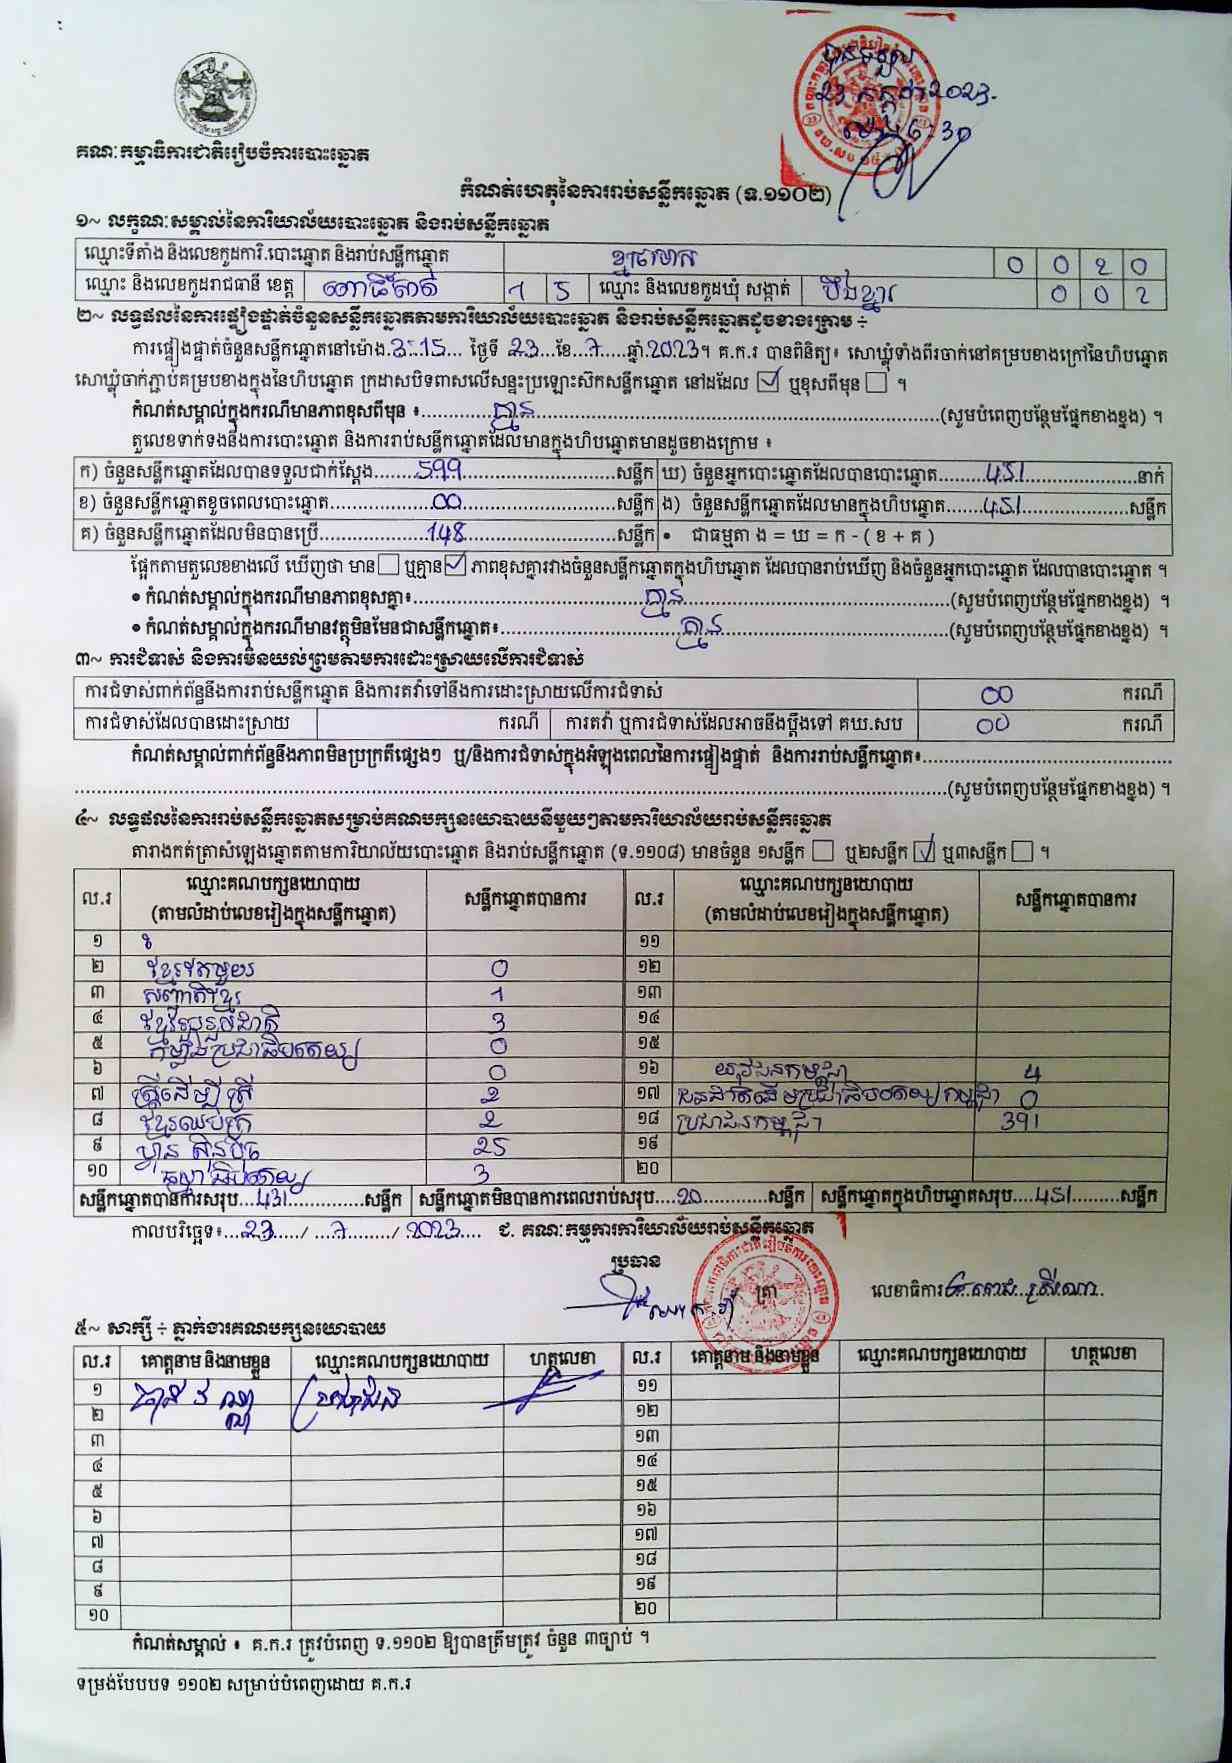 បានទទួល
23 កក្កដា 2023.
ម៉ោង 6:30
គណៈកម្មាធិការជាតិរៀបចំការបោះឆ្នោត
កំណត់ហេតុនៃការរាប់សន្លឹកឆ្នោត (ទ.១១០២)
១~ លក្ខណៈសម្គាល់នៃការិយាល័យបោះឆ្នោត និងរាប់សន្លឹកឆ្នោត
ឈ្មោះទីតាំង និងលេខកូដការិ.បោះឆ្នោត និងរាប់សន្លឹកឆ្នោត 0 0 2 0
ឈ្មោះ និងលេខកូដរាជធានី ខេត្ត ពោធិ៍សាត់ 1 5 ឈ្មោះ និងលេខកូដឃុំ សង្កាត់ បឹងខ្នារ 0 0 2
២~ លទ្ធផលនៃការផ្ទៀងផ្ទាត់ចំនួនសន្លឹកឆ្នោតតាមការិយាល័យបោះឆ្នោត និងរាប់សន្លឹកឆ្នោតដូចខាងក្រោម ÷
ការផ្ទៀងផ្ទាត់ចំនួនសន្លឹកឆ្នោតនៅម៉ោង.3:15... ថ្ងៃទី 23...ខែ...7.....ឆ្នាំ.2023។ គ.ក.រ បានពិនិត្យ៖ សោឃ្លុំទាំងពីរចាក់នៅគម្របខាងក្រៅនៃហិបឆ្នោត
សោឃ្លុំចាក់ភ្ជាប់គម្របខាងក្នុងនៃហិបឆ្នោត ក្រដាសបិទពាសលើសន្ទះប្រឡោះស៊កសន្លឹកឆ្នោត នៅដដែល ☑ ឬខុសពីមុន ☐ ។
កំណត់សម្គាល់ក្នុងករណីមានភាពខុសពីមុន ៖............គ្មាន............(សូមបំពេញបន្ថែមផ្នែកខាងខ្នង) ។
តួលេខទាក់ទងនឹងការបោះឆ្នោត និងការរាប់សន្លឹកឆ្នោតដែលមានក្នុងហិបឆ្នោតមានដូចខាងក្រោម ៖
ក) ចំនួនសន្លឹកឆ្នោតដែលបានទទួលជាក់ស្តែង........599........សន្លឹក ឃ) ចំនួនអ្នកបោះឆ្នោតដែលបានបោះឆ្នោត........451........នាក់
ខ) ចំនួនសន្លឹកឆ្នោតខូចពេលបោះឆ្នោត........00........សន្លឹក ង) ចំនួនសន្លឹកឆ្នោតដែលមានក្នុងហិបឆ្នោត........451........សន្លឹក
គ) ចំនួនសន្លឹកឆ្នោតដែលមិនបានប្រើ........148........សន្លឹក • ជាធម្មតា ង = ឃ = ក - ( ខ + គ )
ផ្អែកតាមតួលេខខាងលើ ឃើញថា មាន ☐ ឬគ្មាន ☑ ភាពខុសគ្នារវាងចំនួនសន្លឹកឆ្នោតក្នុងហិបឆ្នោត ដែលបានរាប់ឃើញ និងចំនួនអ្នកបោះឆ្នោត ដែលបានបោះឆ្នោត ។
• កំណត់សម្គាល់ក្នុងករណីមានភាពខុសគ្នា៖............គ្មាន............(សូមបំពេញបន្ថែមផ្នែកខាងខ្នង) ។
• កំណត់សម្គាល់ក្នុងករណីមានវត្ថុមិនមែនជាសន្លឹកឆ្នោត៖............គ្មាន............(សូមបំពេញបន្ថែមផ្នែកខាងខ្នង) ។
៣~ ការជំទាស់ និងការមិនយល់ព្រមតាមការដោះស្រាយលើការជំទាស់
ការជំទាស់ពាក់ព័ន្ធនឹងការរាប់សន្លឹកឆ្នោត និងការតវ៉ាទៅនឹងការដោះស្រាយលើការជំទាស់ 00 ករណី
ការជំទាស់ដែលបានដោះស្រាយ ករណី ការតវ៉ា ឬការជំទាស់ដែលអាចនឹងប្តឹងទៅ គឃ.សប 00 ករណី
កំណត់សម្គាល់ពាក់ព័ន្ធនឹងភាពមិនប្រក្រតីផ្សេងៗ ឬ/និងការជំទាស់ក្នុងអំឡុងពេលនៃការផ្ទៀងផ្ទាត់ និងការរាប់សន្លឹកឆ្នោត៖............
............(សូមបំពេញបន្ថែមផ្នែកខាងខ្នង) ។
៤~ លទ្ធផលនៃការរាប់សន្លឹកឆ្នោតសម្រាប់គណបក្សនយោបាយនីមួយៗតាមការិយាល័យរាប់សន្លឹកឆ្នោត
តារាងកត់ត្រាសំឡេងឆ្នោតតាមការិយាល័យបោះឆ្នោត និងរាប់សន្លឹកឆ្នោត (ទ.១១០៨) មានចំនួន ១សន្លឹក ☐ ឬ២សន្លឹក ☑ ឬ៣សន្លឹក ☐ ។
ល.រ ឈ្មោះគណបក្សនយោបាយ (តាមលំដាប់លេខរៀងក្នុងសន្លឹកឆ្នោត) សន្លឹកឆ្នោតបានការ ល.រ ឈ្មោះគណបក្សនយោបាយ (តាមលំដាប់លេខរៀងក្នុងសន្លឹកឆ្នោត) សន្លឹកឆ្នោតបានការ
១ ១១
២ ខ្មែរតែមួយ 0 ១២
៣ សញ្ជាតិខ្មែរ 1 ១៣
៤ ខ្មែររួបរួមជាតិ 3 ១៤
៥ កម្លាំងប្រជាធិបតេយ្យ 0 ១៥
៦ 0 ១៦ យុវជនកម្ពុជា 4
៧ ស្ត្រីដើម្បីស្ត្រី 2 ១៧ ជនជាតិដើមប្រជាធិបតេយ្យកម្ពុជា 0
៨ ខ្មែរឈប់ក្រ 2 ១៨ ប្រជាជនកម្ពុជា 391
៩ ហ្វ៊ុនស៊ិនប៉ិច 25 ១៩
១០ ធម្មាធិបតេយ្យ 3 ២០
សន្លឹកឆ្នោតបានការសរុប...431............សន្លឹក សន្លឹកឆ្នោតមិនបានការពេលរាប់សរុប....20............សន្លឹក សន្លឹកឆ្នោតក្នុងហិបឆ្នោតសរុប....451.........សន្លឹក
កាលបរិច្ឆេទ៖...23...../ ....7........./ .2023.... ជ. គណៈកម្មការការិយាល័យរាប់សន្លឹកឆ្នោត
ប្រធាន
ត្រា
លេខាធិការ
៥~ សាក្សី ÷ ភ្នាក់ងារគណបក្សនយោបាយ
ល.រ គោត្តនាម និងនាមខ្លួន ឈ្មោះគណបក្សនយោបាយ ហត្ថលេខា ល.រ គោត្តនាម និងនាមខ្លួន ឈ្មោះគណបក្សនយោបាយ ហត្ថលេខា
១ ប្រជាជន ១១
២ ១២
៣ ១៣
៤ ១៤
៥ ១៥
៦ ១៦
៧ ១៧
៨ ១៨
៩ ១៩
១០ ២០
កំណត់សម្គាល់ ៖ គ.ក.រ ត្រូវបំពេញ ទ.១១០២ ឱ្យបានត្រឹមត្រូវ ចំនួន ៣ច្បាប់ ។
ទម្រង់បែបបទ ១១០២ សម្រាប់បំពេញដោយ គ.ក.រ